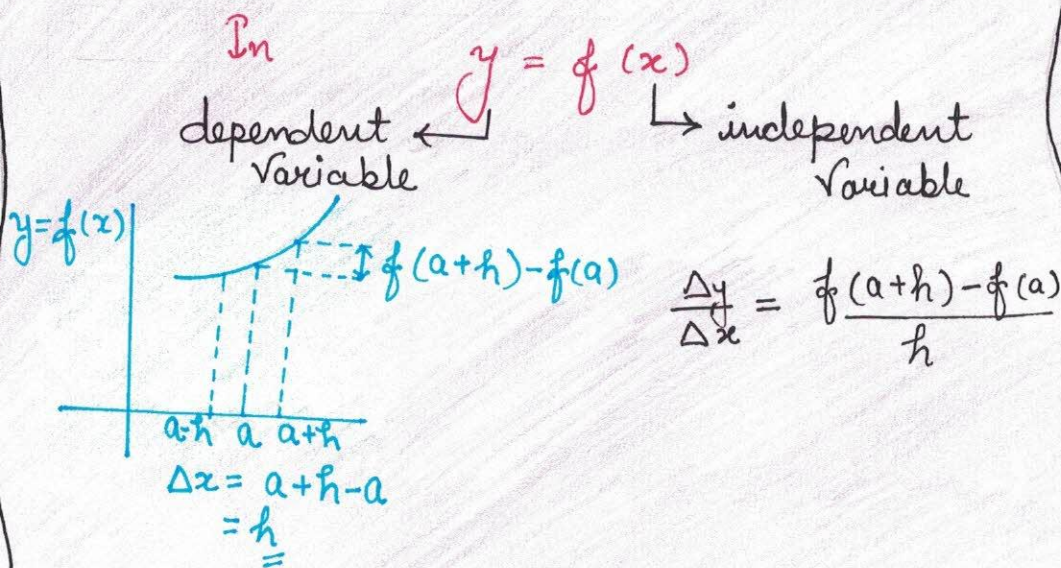 In
y = f(x)
dependent variable
independent variable
y=f(x)
f(a+h)-f(a)
Δy/Δx = f(a+h)-f(a)/h
a-h a a+h
Δx = a+h-a
= h